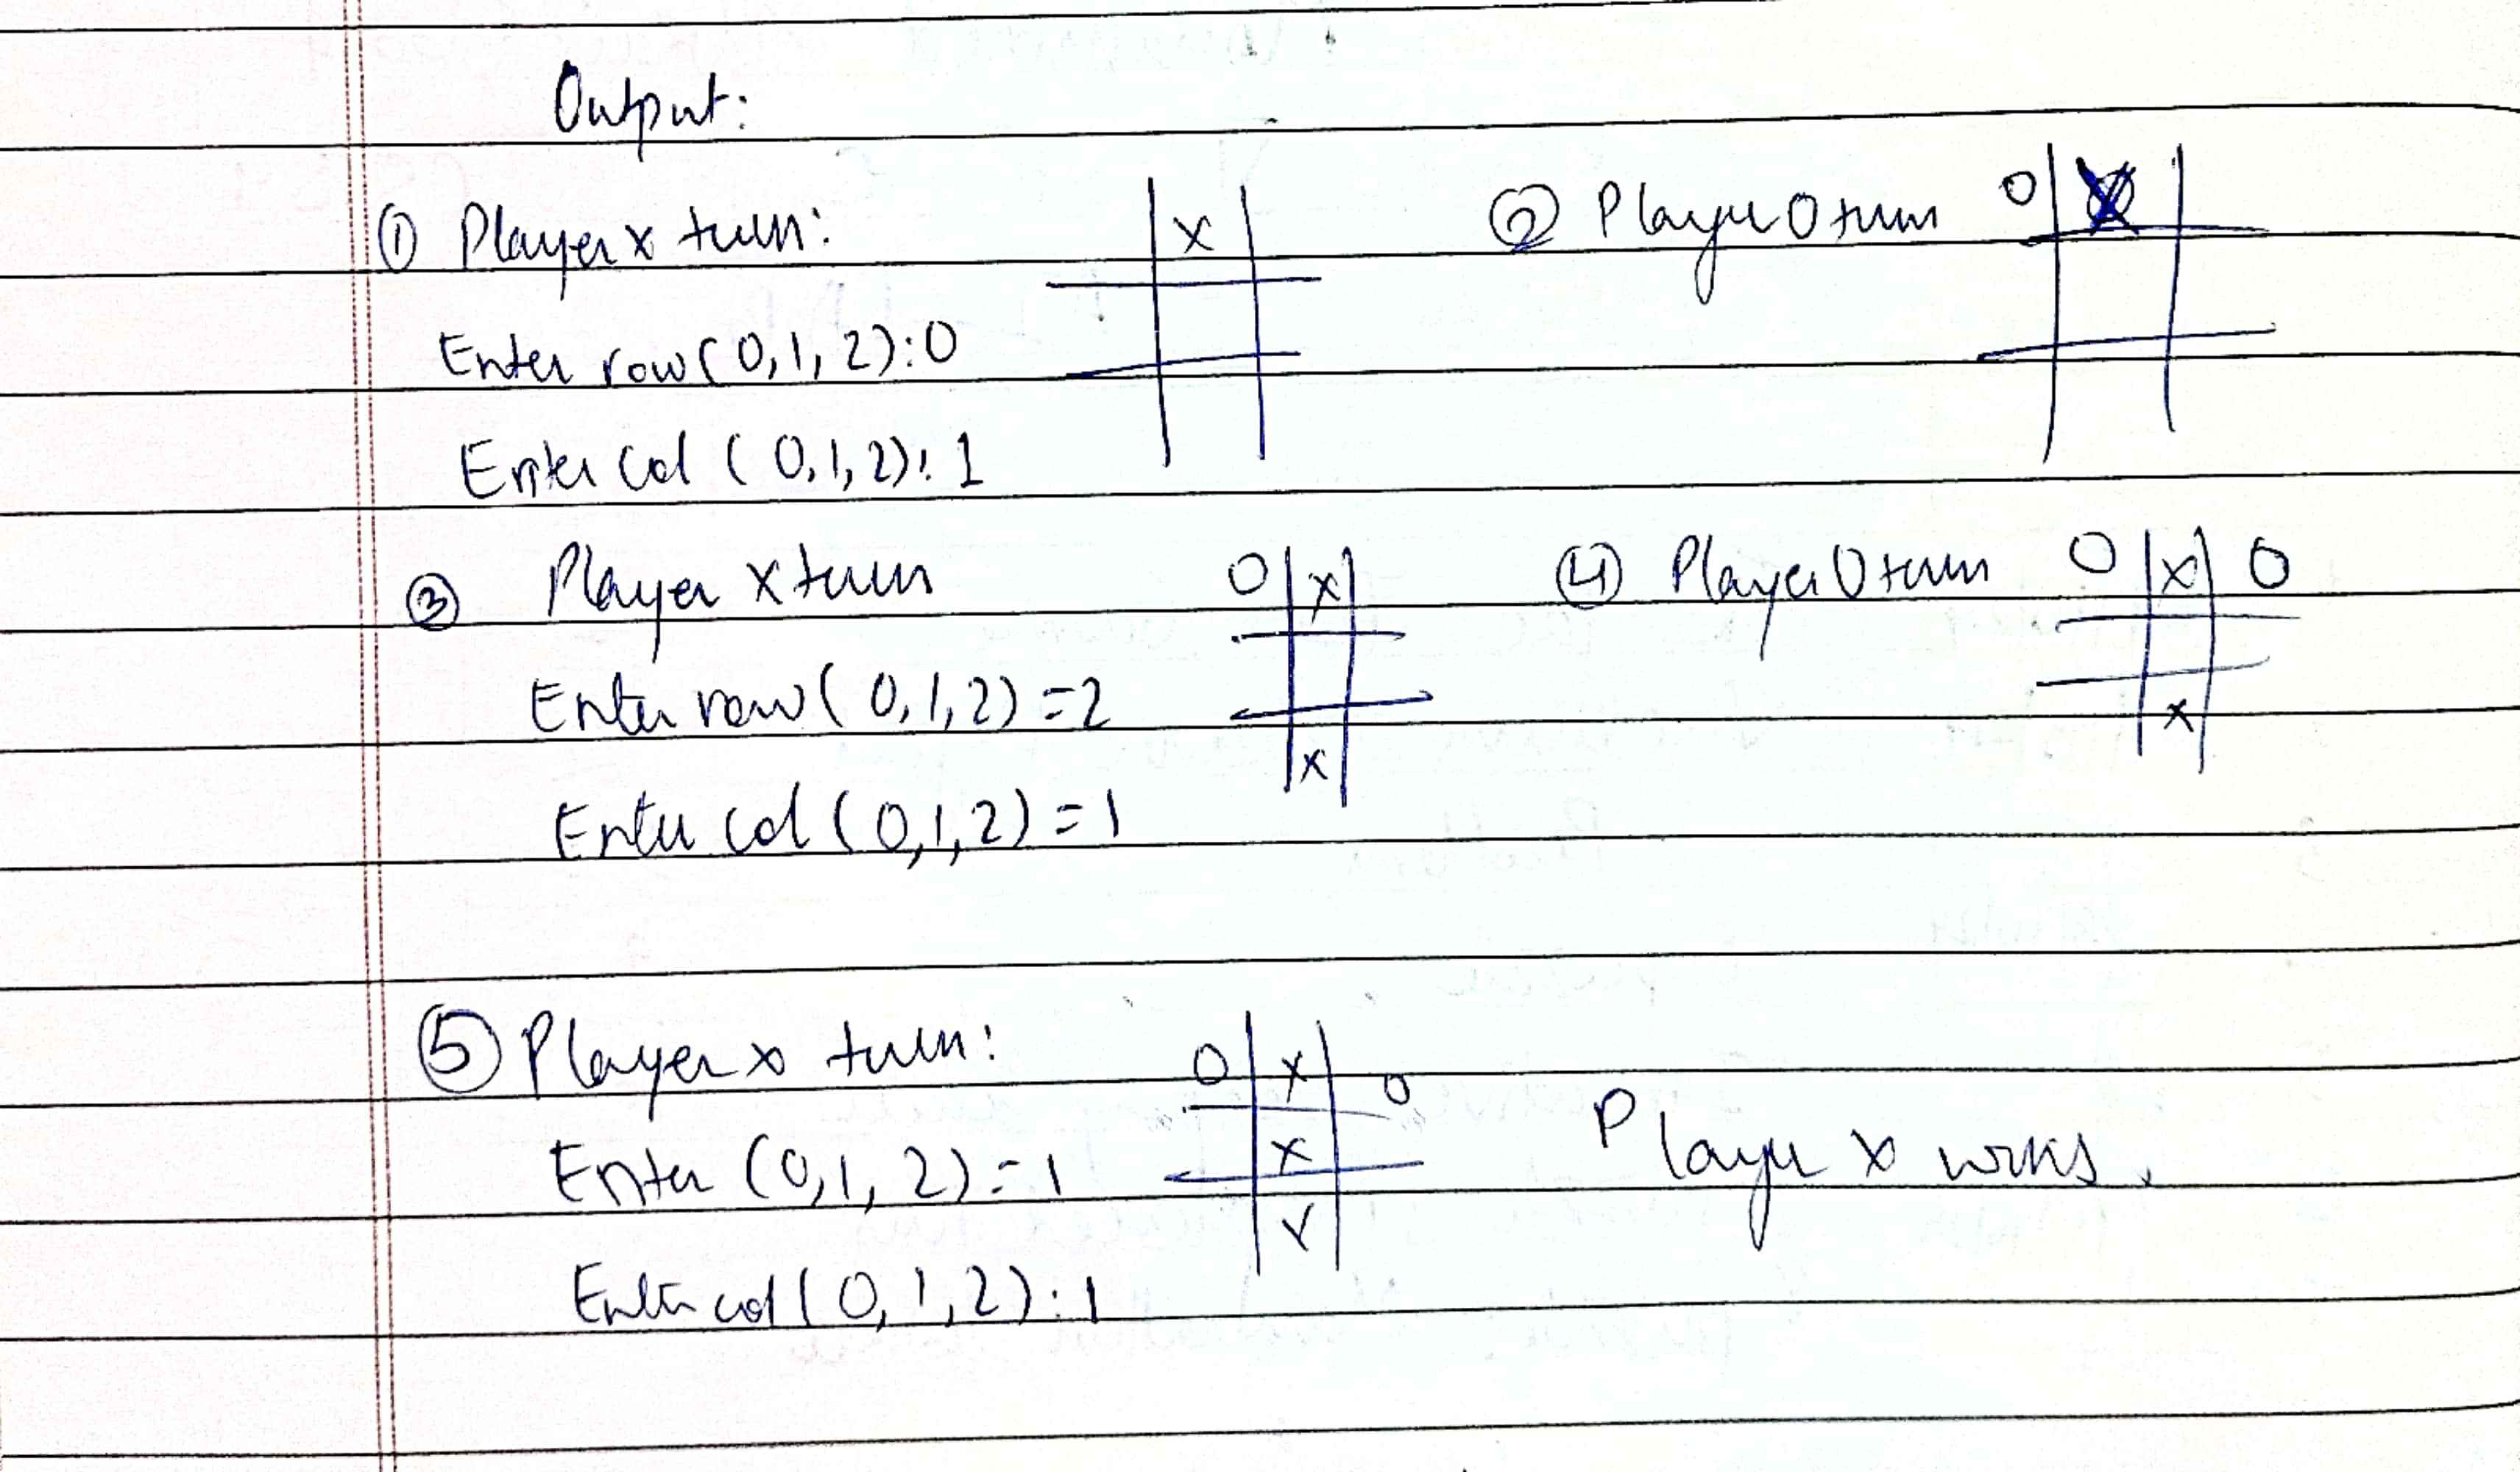 Output:
① Player x turn:
x
Enter row (0,1,2): 0
Enter col (0,1,2): 1
② Player O turn
O X
③ Player x turn
O x
x
Enter row (0,1,2) = 2
Enter col (0,1,2) = 1
④ Player O turn
O x O
x
⑤ Player x turn:
O x O
x
x
Enter (0,1,2) = 1
Enter col (0,1,2): 1
Player x wins.